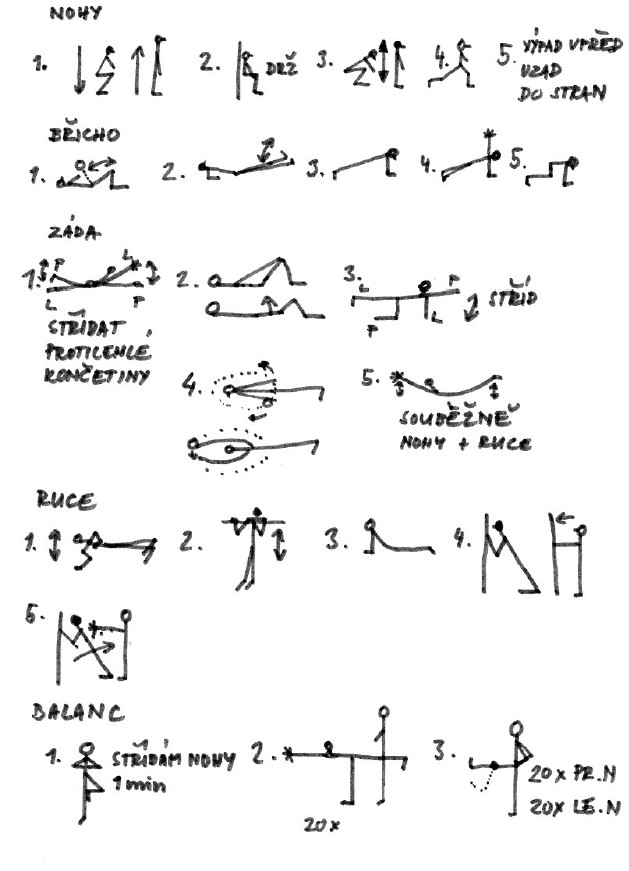 NOHY
1. 2. DRŽ 3. 4. 5. VÝPAD VPŘED
VZAD
DO STRAN
BŘICHO
1. 2. 3. 4. 5.
ZÁDA
1. P L 2. 3. L P
L P P L STŘÍD
STŘÍDAT
PROTILEHLE
KONČETINY
4. 5.
SOUBĚŽNĚ
NOHY + RUCE
RUCE
1. 2. 3. 4.
5.
BALANC
1. STŘÍDÁM NOHY 2. 3.
1 min
20x
20x PR.N
20x LE.N